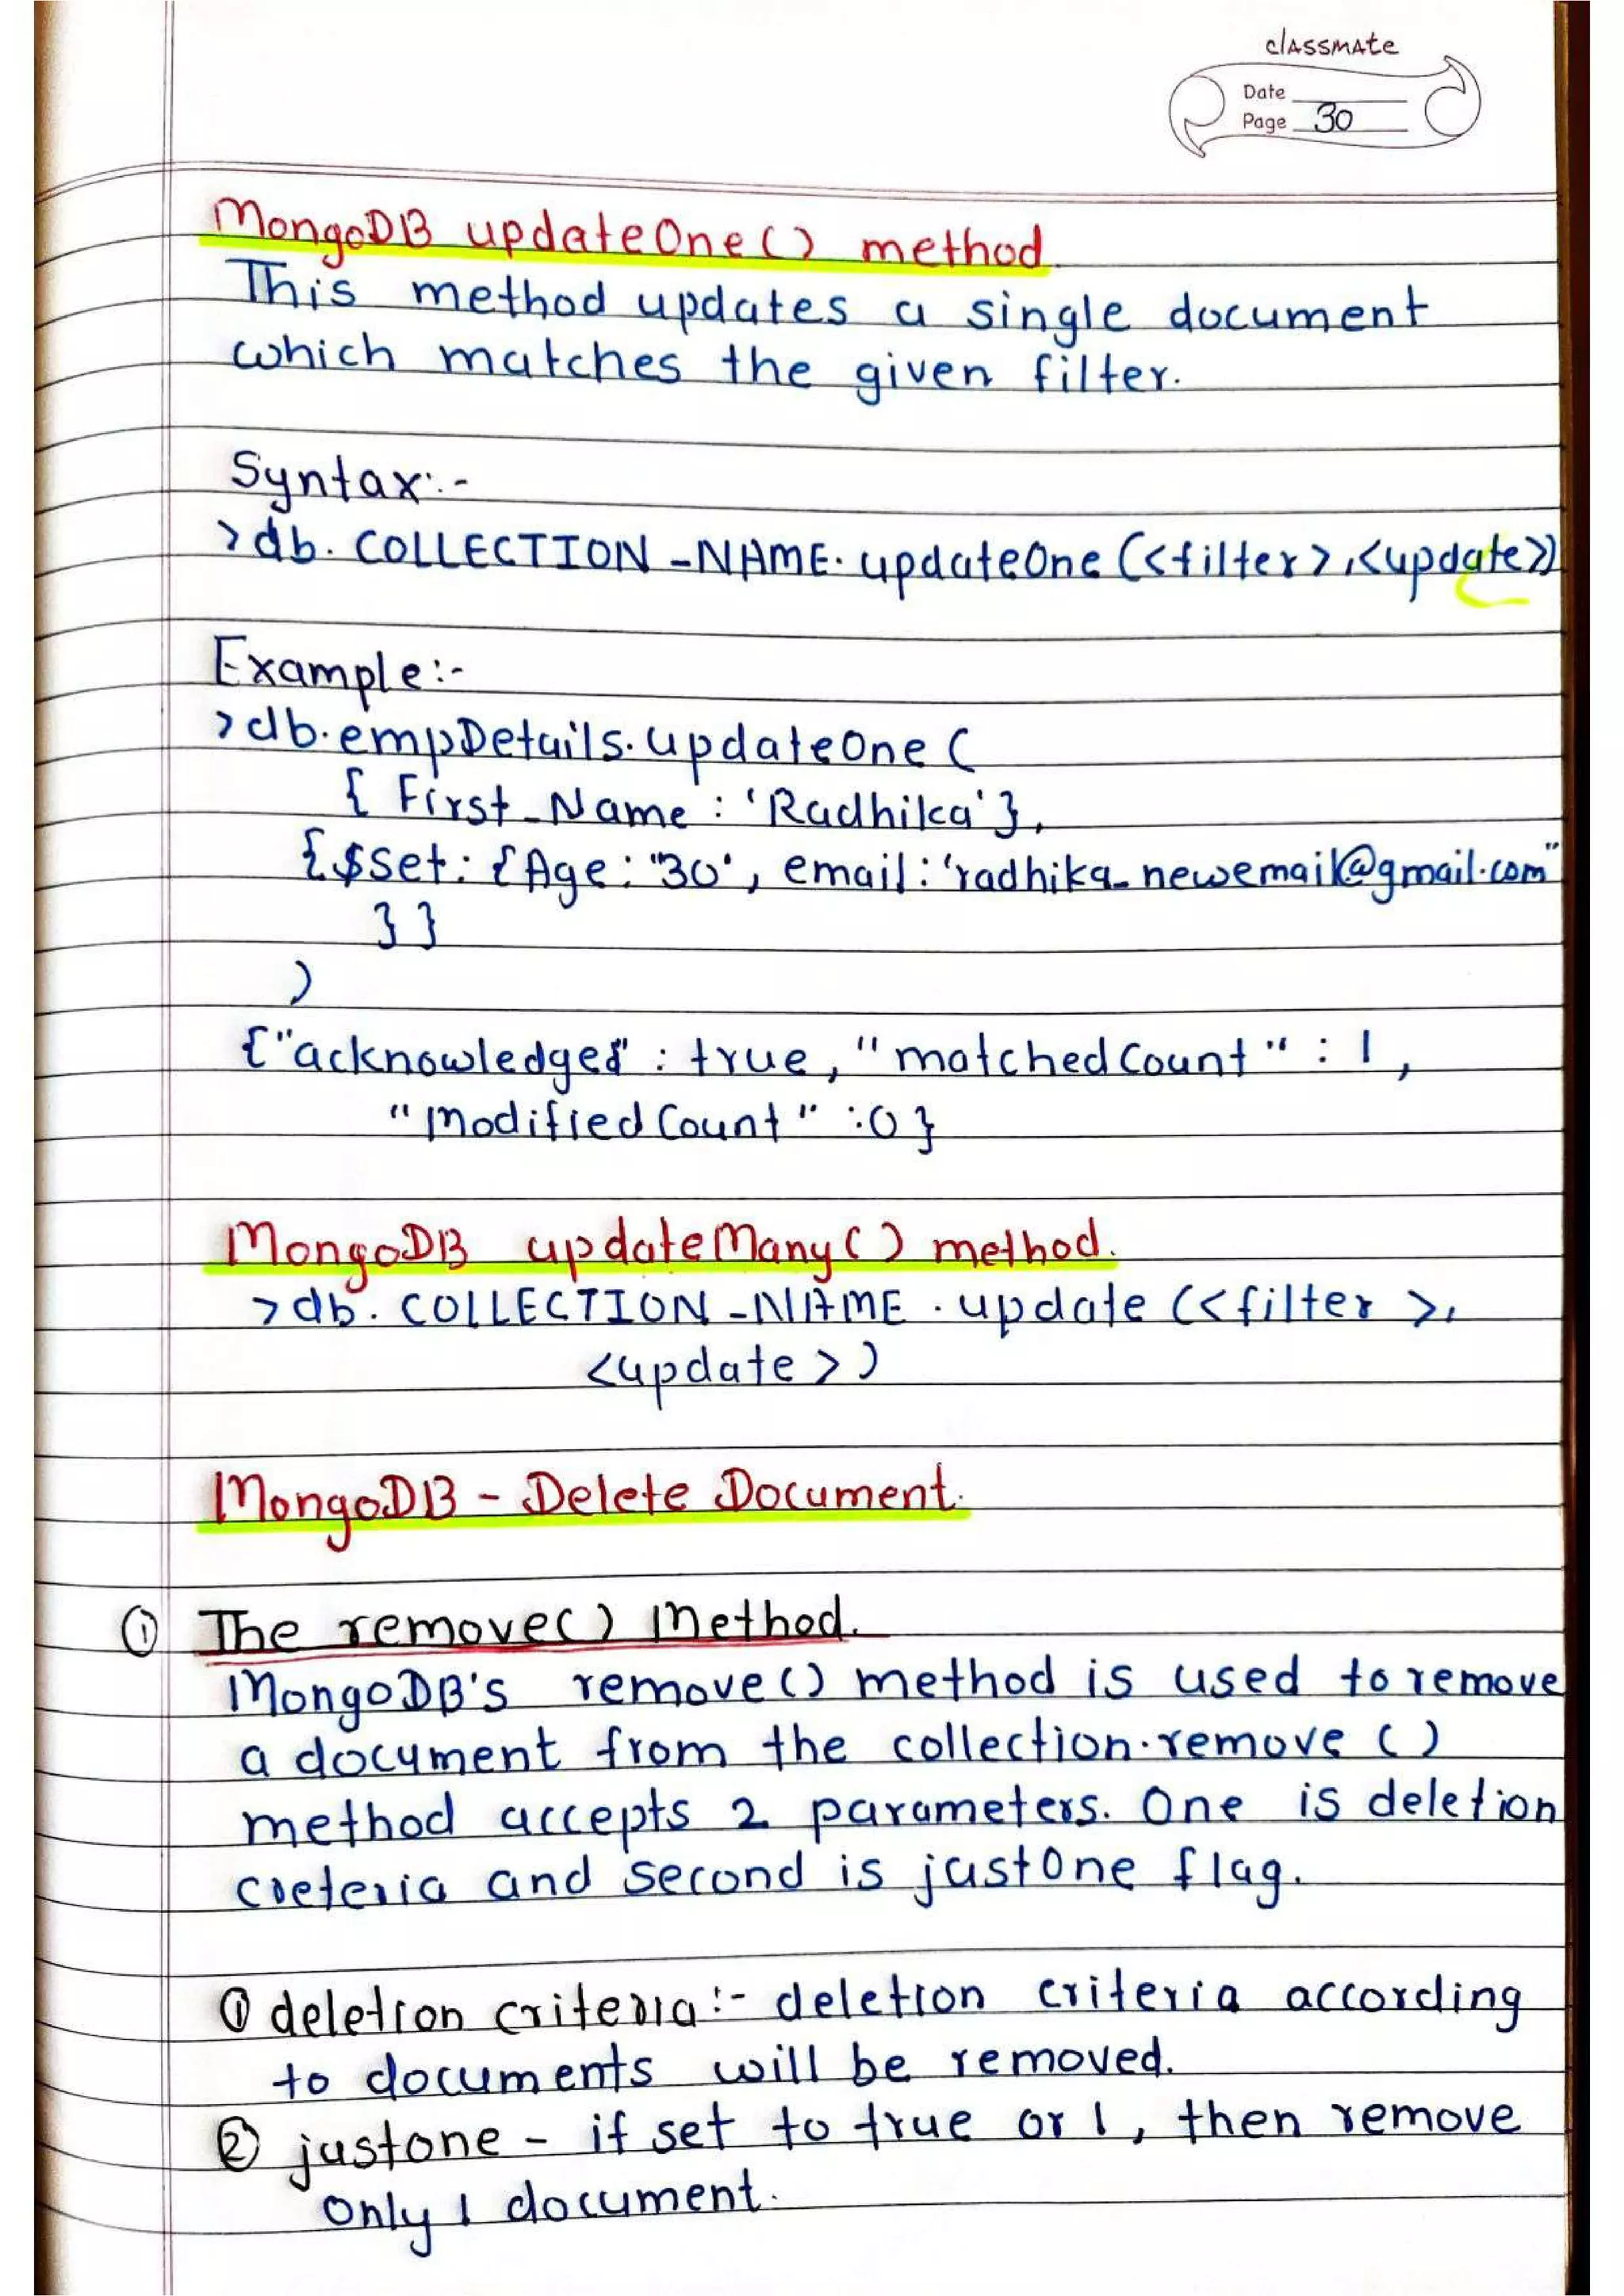 classmate
Date
Page 30
MongoDB updateOne() method.
This method updates a single document
which matches the given filter.
Syntax:-
>db.COLLECTION-NAME.updateOne(<filter>,<update>)
Example:-
>db.empDetails.updateOne(
{ First_Name : 'Radhika' },
{$set: {Age: "30", email: 'radhika_newemail@gmail.com"
}}
)
{"acknowledged" : true, "matchedCount" : 1,
"ModifiedCount" :0}
MongoDB updateMany() method.
>db.COLLECTION-NAME.update(<filter>,
<update>)
MongoDB - Delete Document.
① The remove() Method.
MongoDB's remove() method is used to remove
a document from the collection.remove ()
method accepts 2 parameters. One is deletion
creteria and second is justOne flag.
① deletion criteria:- deletion criteria according
to documents will be removed.
② justone - if set to true or 1, then remove
only 1 document.